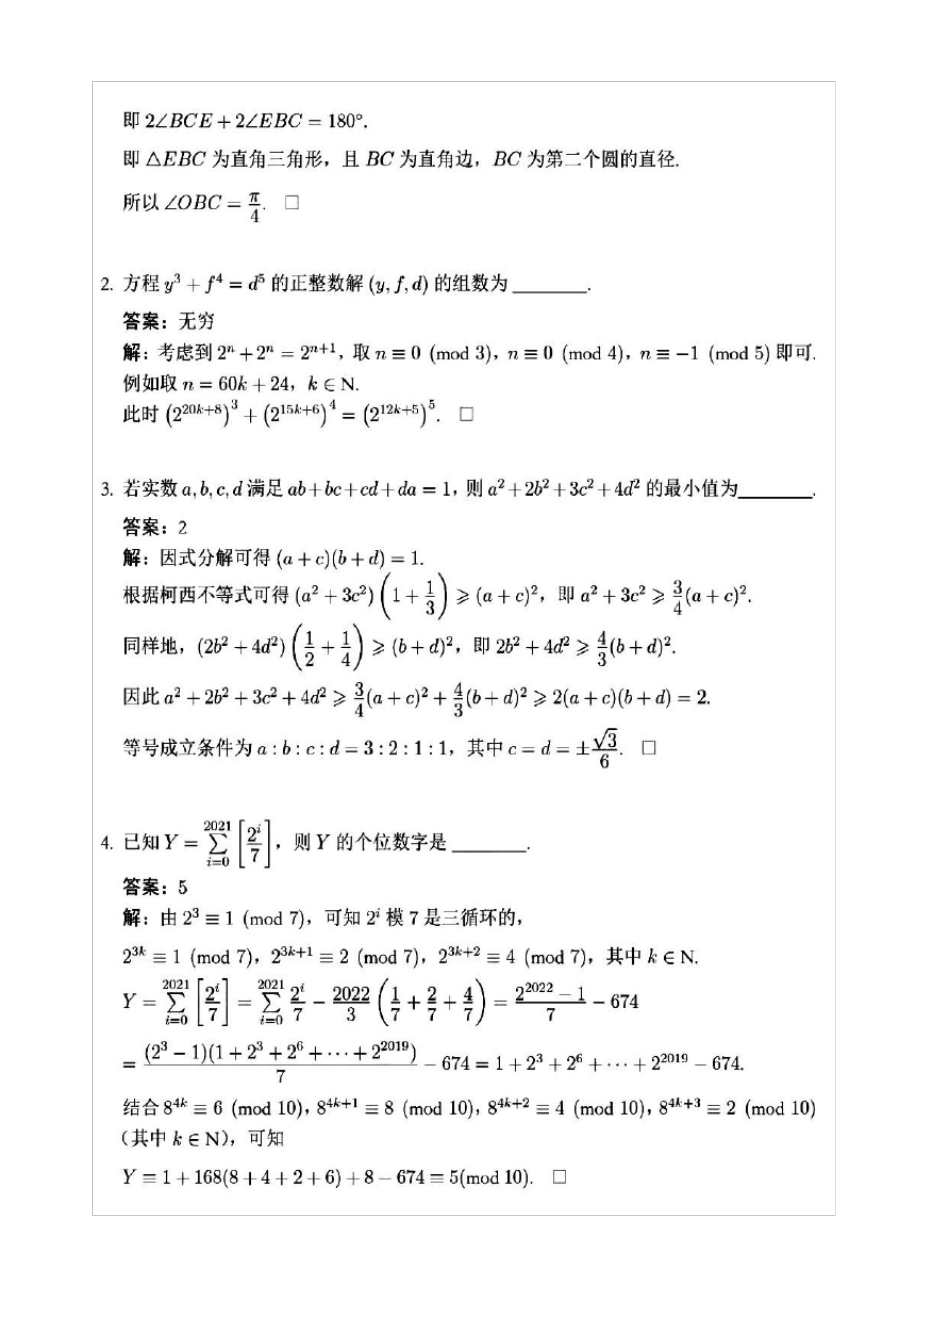 即 2∠BCE + 2∠EBC = 180°.
即 △EBC 为直角三角形，且 BC 为直角边，BC 为第二个圆的直径.
所以 ∠OBC = π/4. □
2. 方程 y³ + f⁴ = d⁵ 的正整数解 (y, f, d) 的组数为 ______.
答案：无穷
解：考虑到 2ⁿ + 2ⁿ = 2ⁿ⁺¹，取 n ≡ 0 (mod 3)，n ≡ 0 (mod 4)，n ≡ −1 (mod 5) 即可.
例如取 n = 60k + 24，k ∈ N.
此时 (2^{20k+8})³ + (2^{15k+6})⁴ = (2^{12k+5})⁵. □
3. 若实数 a, b, c, d 满足 ab + bc + cd + da = 1，则 a² + 2b² + 3c² + 4d² 的最小值为______.
答案：2
解：因式分解可得 (a + c)(b + d) = 1.
根据柯西不等式可得 (a² + 3c²)(1 + 1/3) ⩾ (a + c)²，即 a² + 3c² ⩾ 3/4(a + c)².
同样地，(2b² + 4d²)(1/2 + 1/4) ⩾ (b + d)²，即 2b² + 4d² ⩾ 4/3(b + d)².
因此 a² + 2b² + 3c² + 4d² ⩾ 3/4(a + c)² + 4/3(b + d)² ⩾ 2(a + c)(b + d) = 2.
等号成立条件为 a : b : c : d = 3 : 2 : 1 : 1，其中 c = d = ±√3/6. □
4. 已知 Y = ∑_{i=0}^{2021} [2^i/7]，则 Y 的个位数字是 ______.
答案：5
解：由 2³ ≡ 1 (mod 7)，可知 2^i 模 7 是三循环的，
2^{3k} ≡ 1 (mod 7)，2^{3k+1} ≡ 2 (mod 7)，2^{3k+2} ≡ 4 (mod 7)，其中 k ∈ N.
Y = ∑_{i=0}^{2021} [2^i/7] = ∑_{i=0}^{2021} 2^i/7 − 2022/3 (1/7 + 2/7 + 4/7) = (2^{2022} − 1)/7 − 674
= (2³ − 1)(1 + 2³ + 2⁶ + ··· + 2^{2019})/7 − 674 = 1 + 2³ + 2⁶ + ··· + 2^{2019} − 674.
结合 8^{4k} ≡ 6 (mod 10)，8^{4k+1} ≡ 8 (mod 10)，8^{4k+2} ≡ 4 (mod 10)，8^{4k+3} ≡ 2 (mod 10)
（其中 k ∈ N），可知
Y ≡ 1 + 168(8 + 4 + 2 + 6) + 8 − 674 ≡ 5(mod 10). □